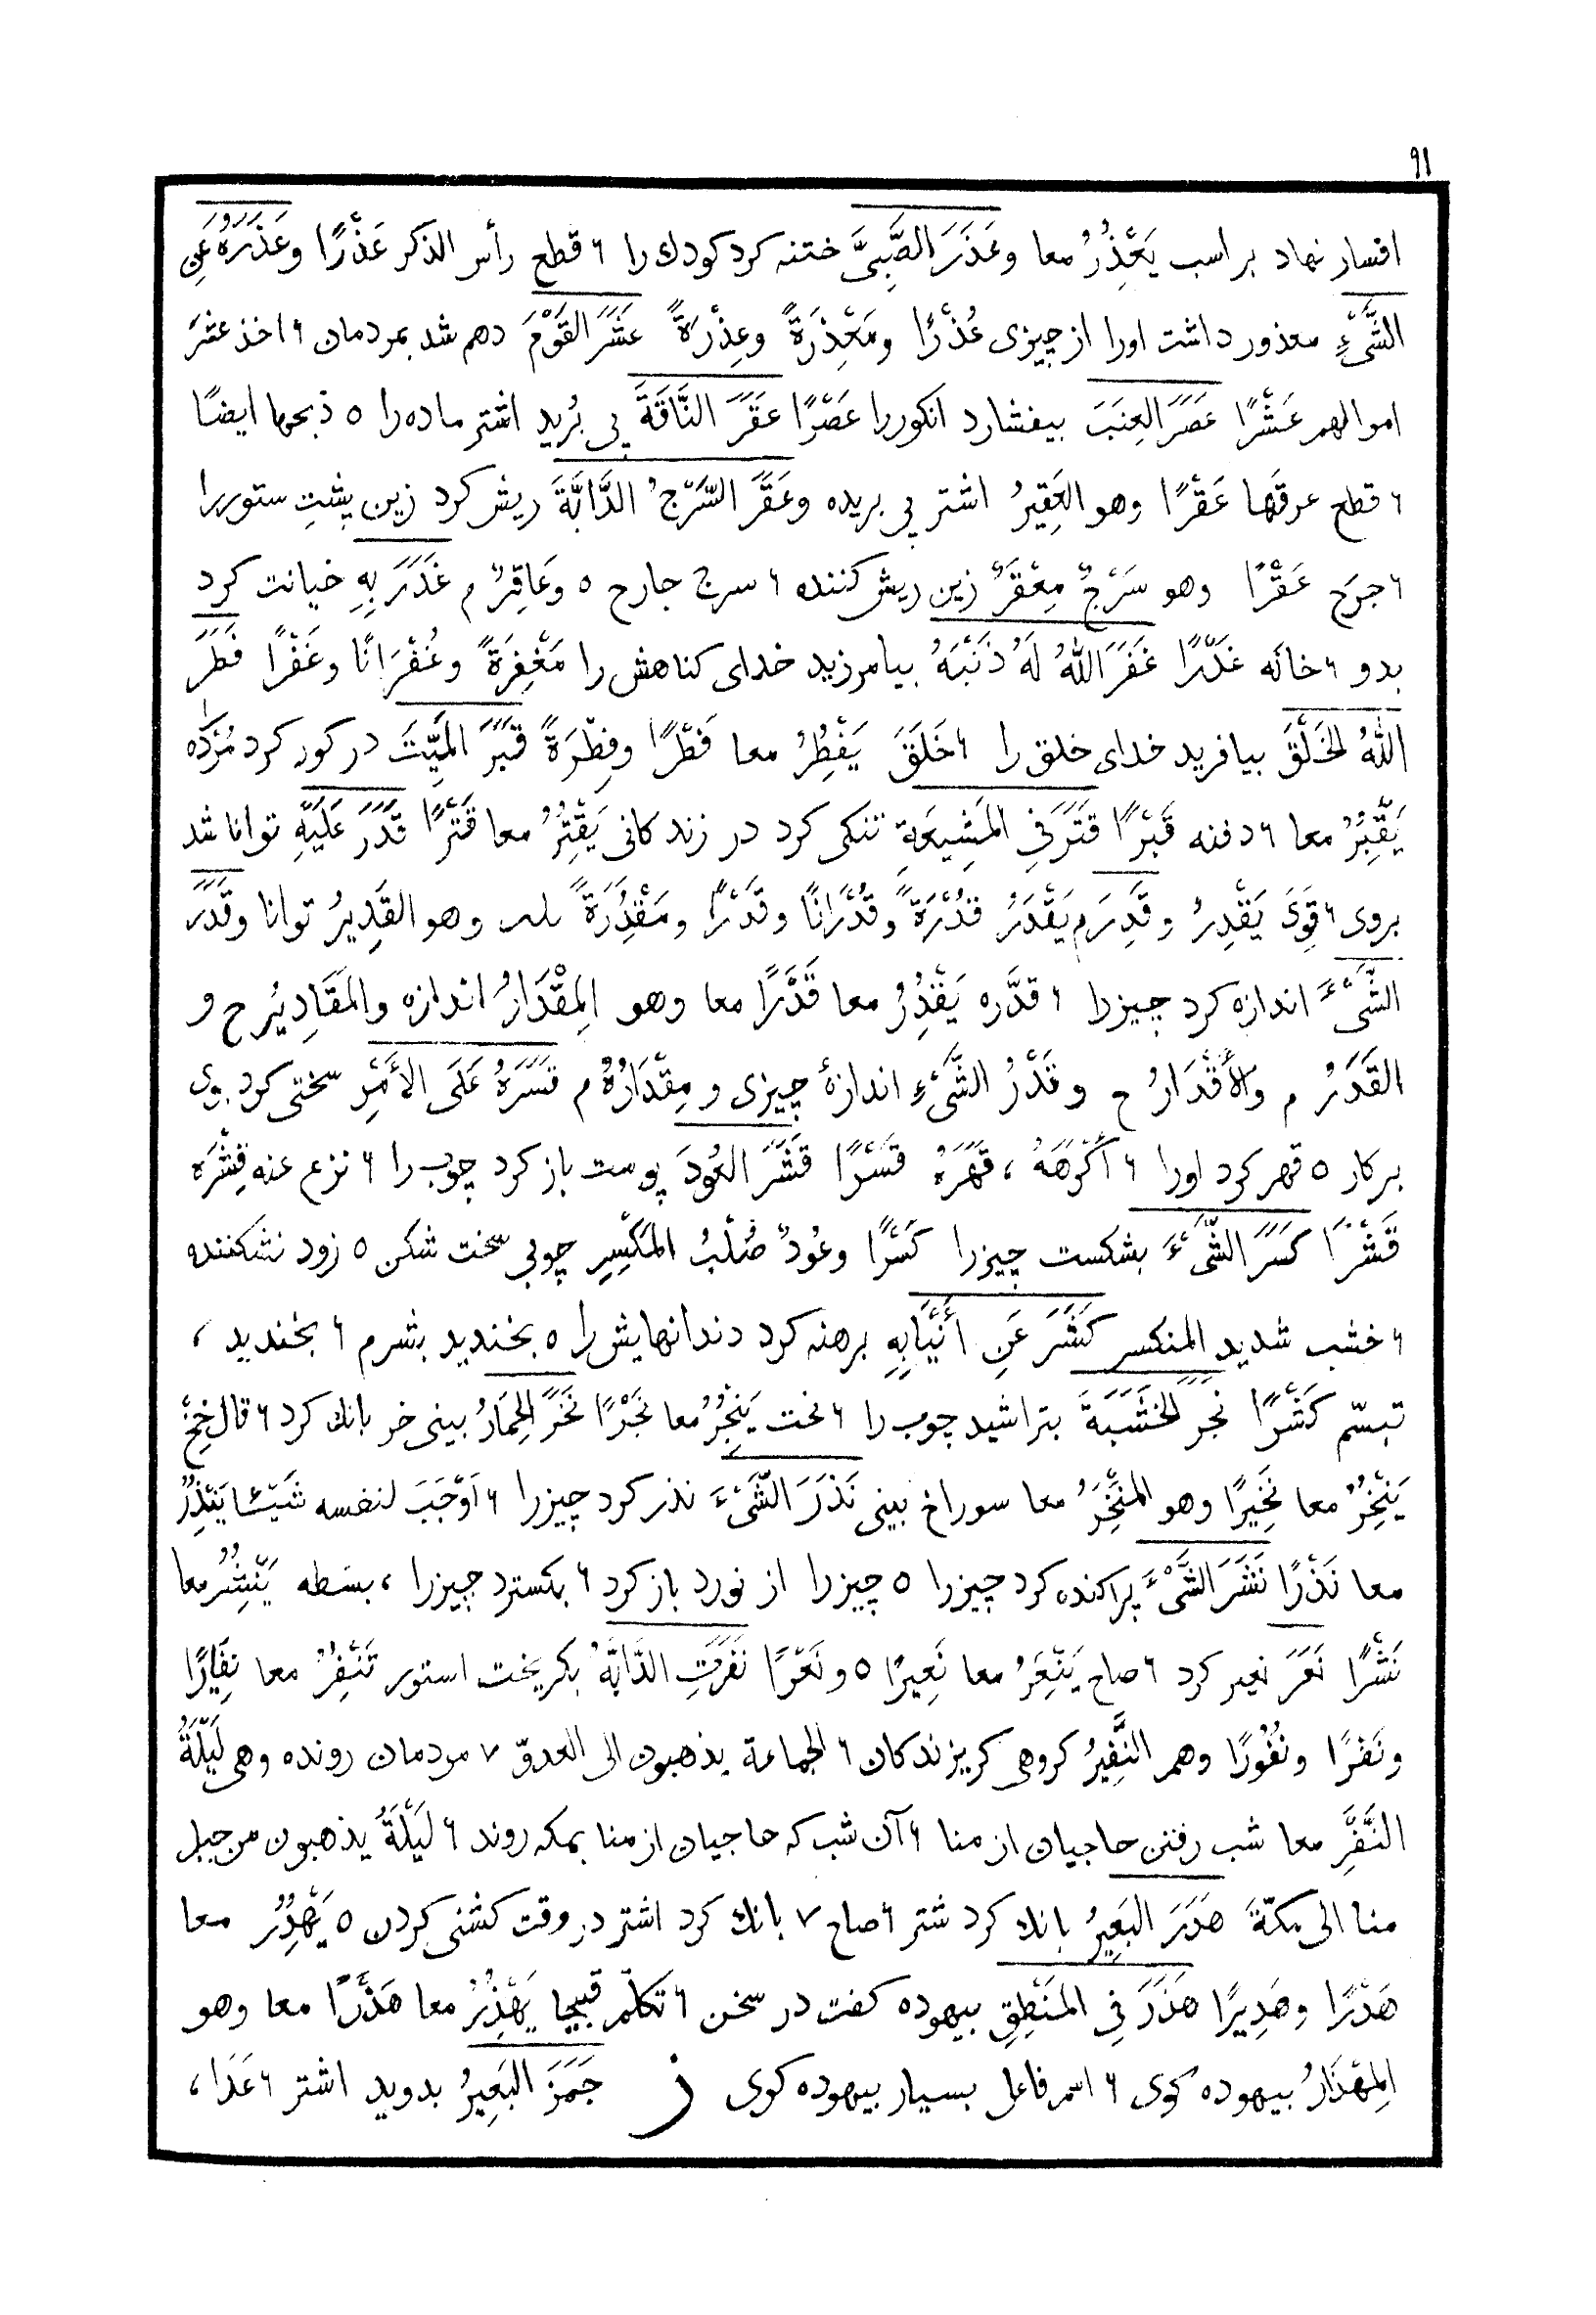 ۹۱
افسار نهاد بر اسب يَعْذِرُ معا وعَذَرَ الصَّبِىَّ ختنه كرد كودك را ۶ قطع رأس الذكر عَذْرًا وعَذَرَهُ عَنِ
الشَّىْءِ معذور داشت اورا از چيزى عُذْرًا ومَعْذِرَةً وعِذْرَةً عَشَرَ القَوْمَ دهم شد بمردمان ۶ اخذ عشر
اموالهم عَشْرًا عَصَرَ العِنَبَ بيفشارد انكوررا عَصْرًا عَقَرَ النَّاقَةَ پى بُريد اشتر ماده را ٥ ذبحها ايضًا
۶ قطع عرقها عَقْرًا وهو العَقِيرُ اشتر پى بريده وعَقَرَ السَّرْجُ الدَّابَّةَ ريش كرد زين پشتِ ستوررا
۶ جرَح عَقْرًا وهو سَرْجٌ مِعْقَرٌ زين ريش كننده ۶ سرج جارح ٥ وعَاقِرٌ م غَدَرَ بِهِ خيانت كرد
بدو ۶ خانه غَدْرًا غَفَرَ اللّٰهُ لَهُ ذَنْبَهُ بيامرزيد خداى كناهش را مَغْفِرَةً وغُفْرَانًا وغَفْرًا فَطَرَ
اللّٰهُ الخَلْقَ بيافريد خداى خلق را ۶ خَلَقَ يَفْطِرُ معا فَطْرًا وفِطْرَةً قَبَرَ المَيِّتَ در كور كرد مُرْدَه
يَقْبِرُ معا ۶ دفنه قَبْرًا قَتَرَ فِى المَشِيعَةِ تنكى كرد در زندكانى يَقْتِرُ معا قَتْرًا قَدَرَ عَلَيْهِ توانا شد
بروى ۶ قَوِىَ يَقْدِرُ وقَدِرَ م يَقْدَرُ قُدْرَةً وقُدْرَانًا وقَدْرًا ومَقْدِرَةً وهو القَدِيرُ توانا وقَدَرَ
الشَّىْءَ اندازه كرد چيزرا ۶ قدَّره يَقْدِرُ معا قَدْرًا معا وهو المِقْدَارُ اندازه والمَقَادِيرُ ح و
القَدَرُ م والأَقْدَارُ ح وقَدْرُ الشَّىْءِ اندازهٔ چيزى ومِقْدَارُهُ م قَسَرَهُ عَلَى الأَمْرِ سختى كرد بوى
بركار ٥ قهر كرد اورا ۶ أَكْرَهَهُ ، قَهَرَهُ قَسْرًا قَشَرَ العُودَ پوست باز كرد چوب را ۶ نزع عنه قِشْرَه
قَشْرًا كَسَرَ الشَّىْءَ بشكست چيزرا كَسْرًا وعُودٌ صُلْبُ المَكْسِرِ چوبى سخت شكن ٥ زود نشكننده
۶ خشب شديد المنكسر كَشَرَ عَنِ أَنْيَابِهِ برهنه كرد دندانهايش را ٥ بخنديد بشرم ۶ بخنديد ،
تبسّم كَشْرًا نجَرَ الخَشَبَةَ بتراشيد چوب را ۶ نحت يَنْجِرُ معا نَجْرًا نَخَرَ الحِمَارُ بينى خر بانك كرد ۶ قال خِخْ
يَنْخِرُ معا نَخِيرًا وهو المَنْخِرُ معا سوراخ بينى نَذَرَ الشَّىْءَ نذر كرد چيزرا ۶ اَوْجَبَ لنفسه شَيْئًا يَنْذِرُ
معا نَذْرًا نَشَرَ الشَّىْءَ پراكنده كرد چيزرا ٥ چيزرا از نورد باز كرد ۶ بكسترد چيزرا ، بسَطه يَنْشِرُ معا
نَشْرًا نَعَرَ نعير كرد ۶ صاح يَنْعِرُ معا نَعِيرًا ٥ ونَعْرًا نَفَرَتِ الدَّابَّةُ بكريخت استور تَنْفِرُ معا نِفَارًا
ونَفْرًا ونُفُورًا وهم النَّفِيرُ كروهى كريزندكان ۶ الجماعة يذهبون الى العدوّ ٧ مردمان رونده وهى لَيْلَةُ
النَّفْرِ معا شب رفتن حاجيان از منا ۶ آن شب كه حاجيان از منا بمكه روند ۶ لَيْلَةٌ يذهبون من جبل
منا الى مكّةَ هَدَرَ البَعِيرُ بانك كرد شتر ۶ صاح ٧ بانك كرد اشتر در وقت كشنى كردن ٥ يَهْدِرُ معا
هَدْرًا وهَدِيرًا هَذَرَ فِى المَنْطِقِ بيهوده كفت در سخن ۶ تكلّم قبيحا يَهْذِرُ معا هَذْرًا معا وهو
المِهْذَارُ بيهوده كوى ۶ اسم فاعل بسيار بيهوده كوى ز جَمَزَ البَعِيرُ بدويد اشتر ۶ عَدَا ،